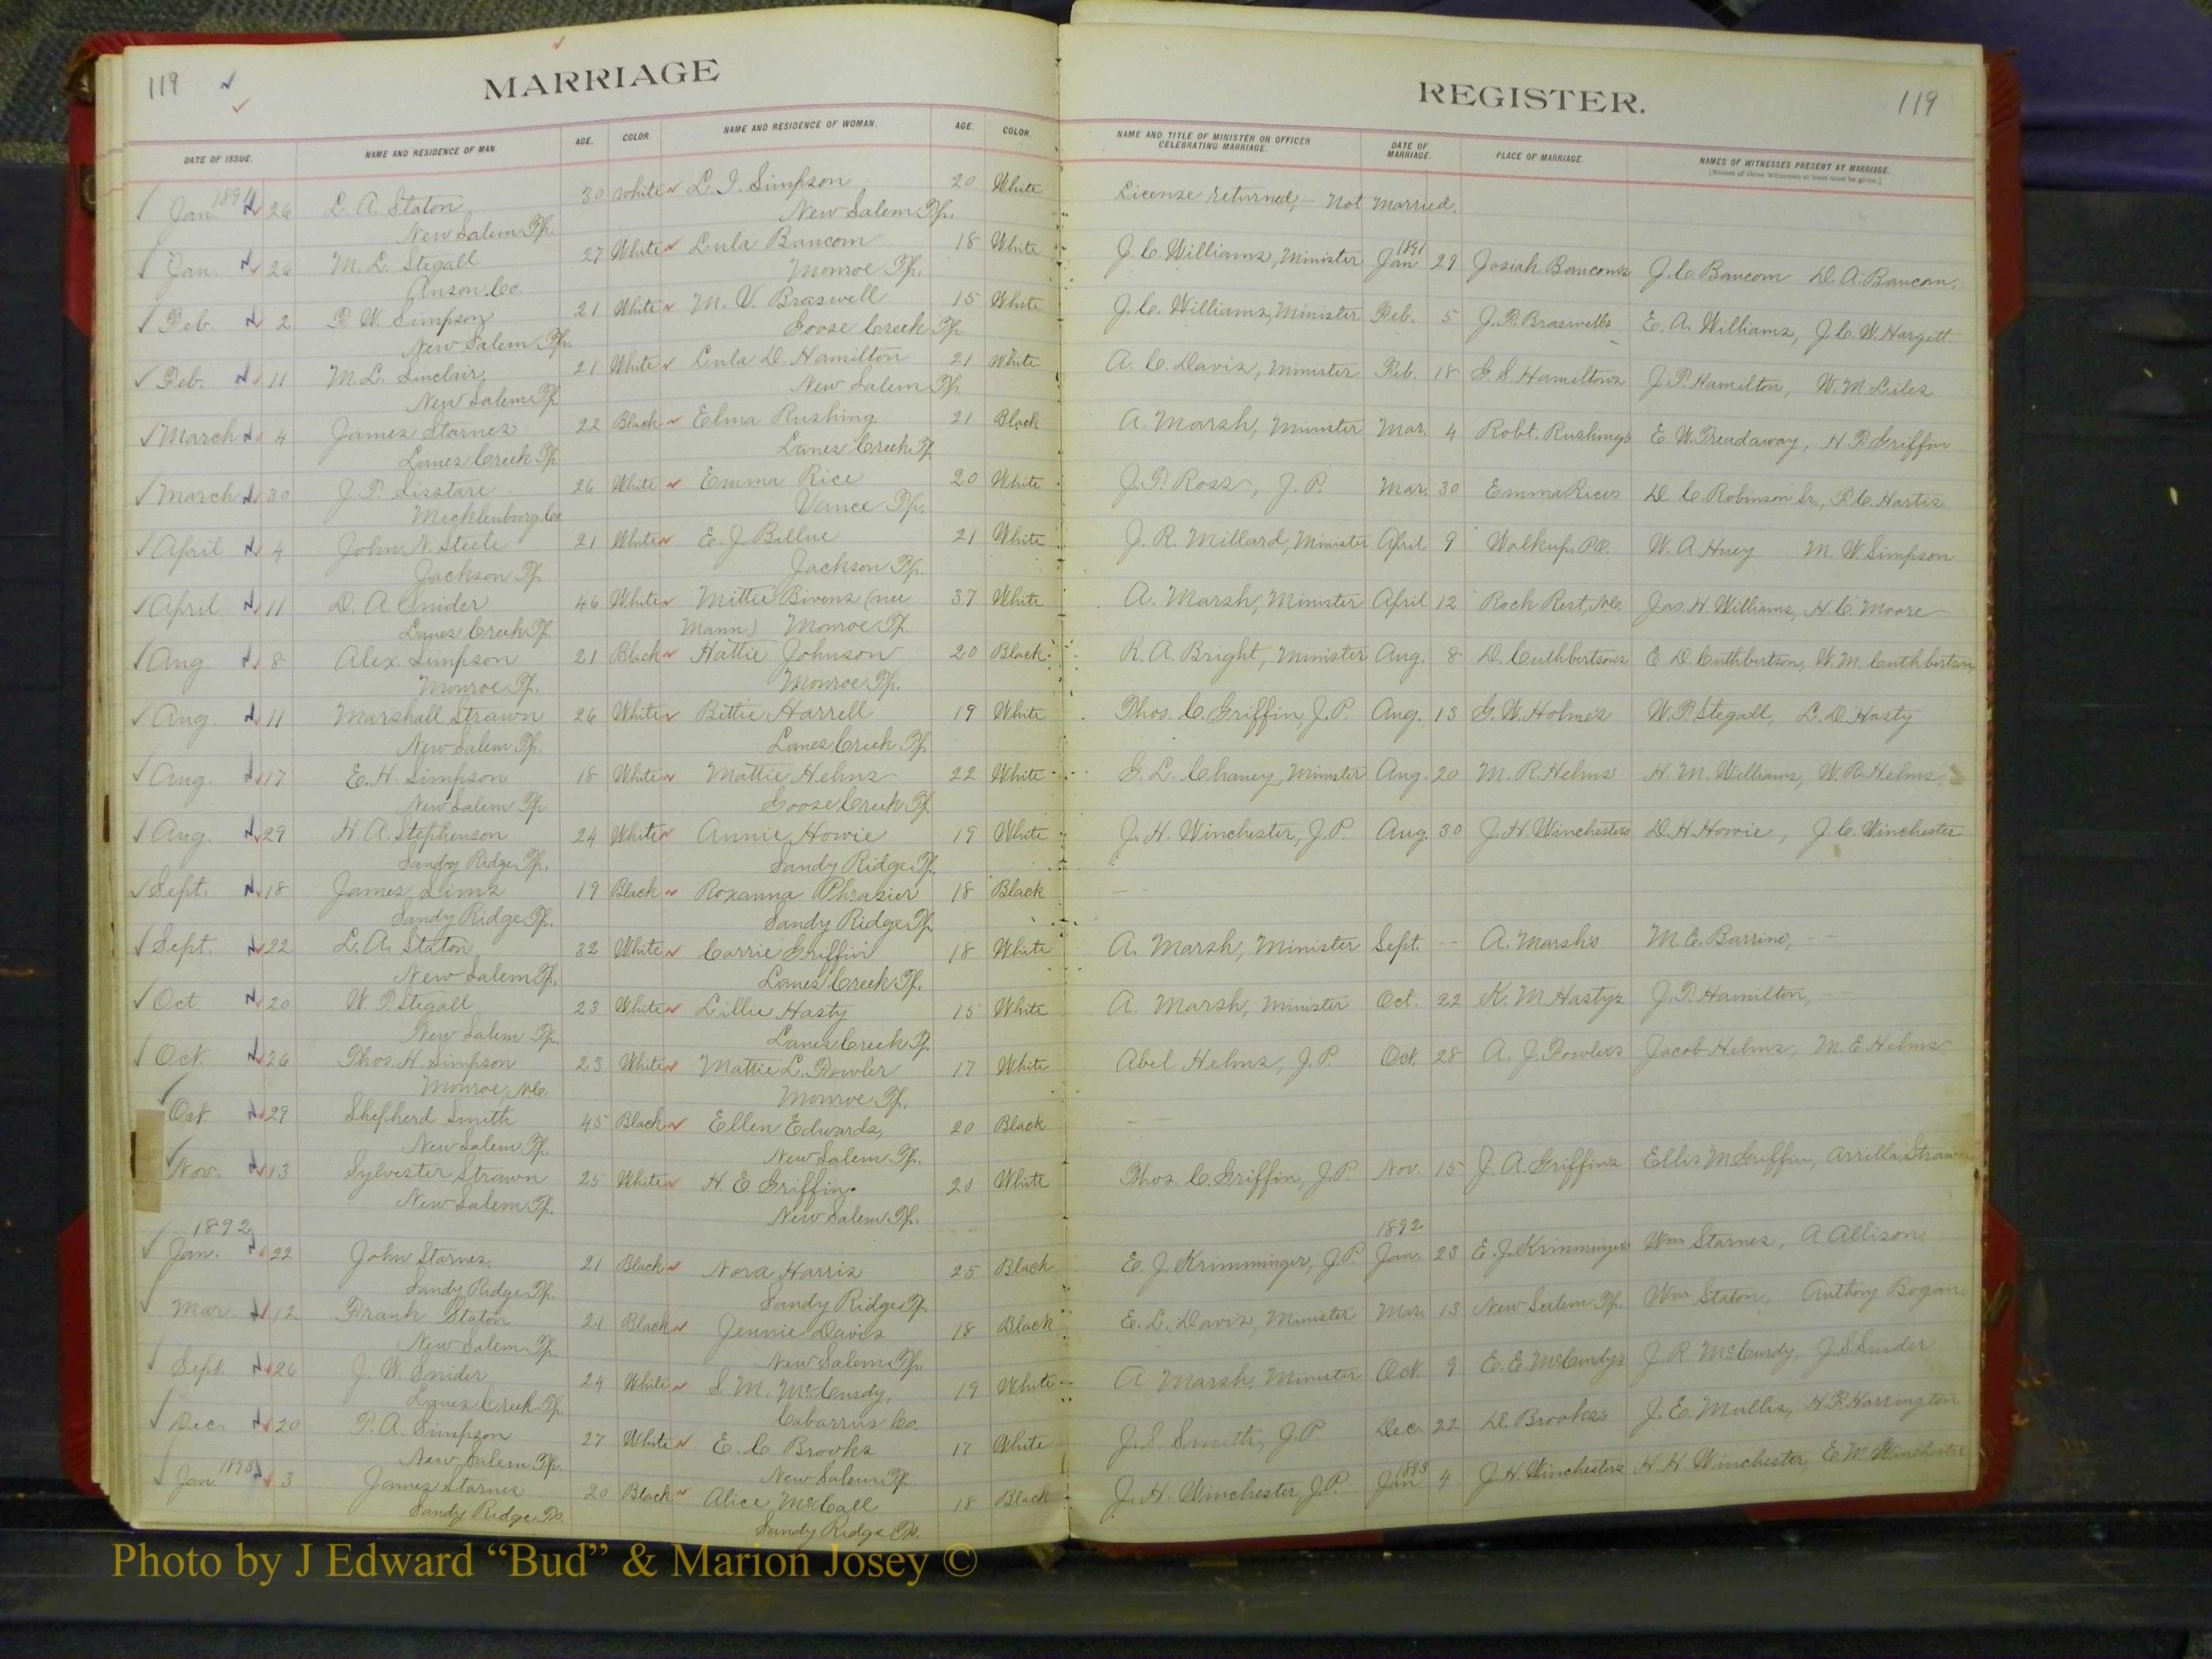 119
MARRIAGE
REGISTER.
119
DATE OF ISSUE.
NAME AND RESIDENCE OF MAN.
AGE.
COLOR.
NAME AND RESIDENCE OF WOMAN.
AGE.
COLOR.
NAME AND TITLE OF MINISTER OR OFFICER
CELEBRATING MARRIAGE.
DATE OF
MARRIAGE.
PLACE OF MARRIAGE.
NAMES OF WITNESSES PRESENT AT MARRIAGE.
[Names of three Witnesses at least must be given.]
1891
Jan. 26 L. A. Staton 30 White L. J. Simpson 20 White License returned, — not married.
New Salem Tp. New Salem Tp.
Jan. 26 M. L. Stegall 27 White Lula Baucom 18 White J. C. Williams, Minister 1891 Jan 29 Josiah Baucom's J. C. Baucom D. A. Baucom,
Anson Co. Monroe Tp.
Feb. 2 W. Simpson 21 White M. V. Braswell 15 White J. C. Williams, Minister Feb. 5 J. T. Braswells E. A. Williams, J. C. W. Hargett
New Salem Tp. Goose Creek Tp
Feb. 11 M. L. Sinclair 21 White Lula D. Hamilton 21 White A. C. Davis, Minister Feb. 18 G. S. Hamiltons J. T. Hamilton, W. M. Liles
New Salem Tp. New Salem Tp.
March 4 James Starnes 22 Black Elma Rushing 21 Black A. Marsh, Minister Mar. 4 Robt. Rushings E. W. Treadaway, H. T. Griffin
Lanes Creek Tp Lanes Creek Tp
March 30 J. P. 26 White Emma Rice 20 White J. P. Ross, J. P. Mar. 30 Emma Rices D. C. Robinson Sr., F. C. Hartis
Mecklenburg Co Vance Tp.
April 4 John N. Steele 21 White E. J. Billue 21 White J. R. Millard, Minister April 9 Walkup, P.O. W. A. Huey M. W. Simpson
Jackson Tp Jackson Tp.
April 11 D. A. Snider 46 White Mittie Bivens (nee 37 White A. Marsh, Minister April 12 Rock Rest, N.C. Jas. H. Williams, H. C. Moore
Lanes Creek Tp. Mann) Monroe Tp.
Aug. 8 Alex. Simpson 21 Black Hattie Johnson 20 Black R. A. Bright, Minister Aug. 8 D. Cuthbertsons E. D. Cuthbertson, W. M. Cuthbertson
Monroe Tp. Monroe Tp.
Aug. 11 Marshall Strawn 26 White Bettie Harrell 19 White Thos. C. Griffin, J. P. Aug. 13 G. W. Holmes W. T. Stegall, L. D. Hasty
New Salem Tp. Lanes Creek Tp.
Aug. 17 E. H. Simpson 18 White Mattie Helms 22 White G. L. Chaney, Minister Aug. 20 M. R. Helms' H. M. Williams, W. R. Helms,
New Salem Tp Goose Creek Tp.
Aug. 29 H. A. Stephenson 24 White Annie Howie 19 White J. H. Winchester, J. P. Aug. 30 J. H. Winchesters D. H. Howie, J. C. Winchester
Sandy Ridge Tp. Sandy Ridge Tp.
Sept. 18 James Sims 19 Black Roxanna Phrasier 18 Black — —
Sandy Ridge Tp. Sandy Ridge Tp
Sept. 22 L. A. Staton 32 White Carrie Griffin 18 White A. Marsh, Minister Sept. -- A. Marsh's M. E. Barrino, --
New Salem Tp. Lanes Creek Tp.
Oct. 20 W. T. Stegall 23 White Lillie Hasty 15 White A. Marsh, Minister Oct. 22 K. M. Hastys J. T. Hamilton, —
New Salem Tp. Lanes Creek Tp.
Oct. 26 Thos. H. Simpson 23 White Mattie L. Fowler 17 White Abel Helms, J. P. Oct. 28 A. J. Fowlers Jacob Helms, M. E. Helms
Monroe, N.C. Monroe Tp.
Oct. 29 Shepherd Smith 45 Black Ellen Edwards, 20 Black —
New Salem Tp. New Salem Tp.
Nov. 13 Sylvester Strawn 25 White H. E Griffin. 20 White Thos. C. Griffin, J. P. Nov. 15 J. A. Griffins Ellis M Griffin, Arrilla Strawn
New Salem Tp. New Salem Tp.
1892 1892
Jan. 22 John Starnes, 21 Black Nora Harris 25 Black E. J. Krimminger, J. P Jan. 23 E. J. Krimmingers Wm Starnes, A Allison,
Sandy Ridge Tp. Sandy Ridge Tp.
Mar. 12 Frank Staton 21 Black Jennie Davis 18 Black E. L. Davis, Minister Mar. 13 New Salem Tp. Wm Staton, Anthony Bogan,
New Salem Tp. New Salem Tp.
Sept. 26 J. W. Snider 24 White S. M. McCurdy, 19 White A Marsh, Minister Oct. 9 E. E. McCurdy's J. R. McCurdy, J. S. Snider
Lanes Creek Tp. Cabarrus Co.
Dec. 20 T. A. Simpson 27 White E. C Brooks 17 White J. S. Smith, J. P Dec. 22 D. Brooks's J. E. Mullis, H. F. Harrington
New Salem Tp. New Salem Tp
Jan. 1893 3 James Starnes 20 Black Alice McCall 18 Black J. H. Winchester, J. P. 1893 Jan 4 J. H. Winchesters H. H. Winchester, E. M. Winchester
Sandy Ridge Tp. Sandy Ridge Tp.
Photo by J Edward “Bud” & Marion Josey ©